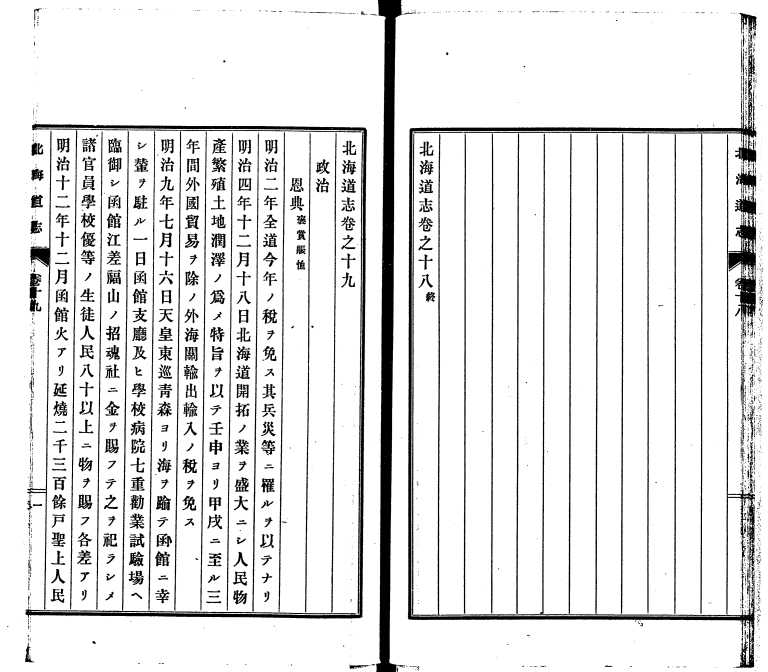 北海道志卷之十八終
北海道志卷之十九
政治
恩典褒賞賑恤
明治二年全道今年ノ稅ヲ免ス其兵災等ニ罹ルヲ以テナリ
明治四年十二月十八日北海道開拓ノ業ヲ盛大ニシ人民物
產繁殖土地潤澤ノ爲メ特旨ヲ以テ壬申ヨリ甲戌ニ至ル三
年間外國貿易ヲ除ノ外海關輸出輸入ノ稅ヲ免ス
明治九年七月十六日天皇東巡靑森ヨリ海ヲ踰テ函館ニ幸
シ輦ヲ駐ル一日函館支廳及ヒ學校病院七重勸業試驗場ヘ
臨御シ函館江差福山ノ招魂社ニ金ヲ賜フテ之ヲ祀ラシメ
諸官員學校優等ノ生徒人民八十以上ニ物ヲ賜フ各差アリ
明治十二年十二月函館火アリ延燒二千三百餘戶聖上人民
北海道志
卷十九
一
北海道志
卷十八